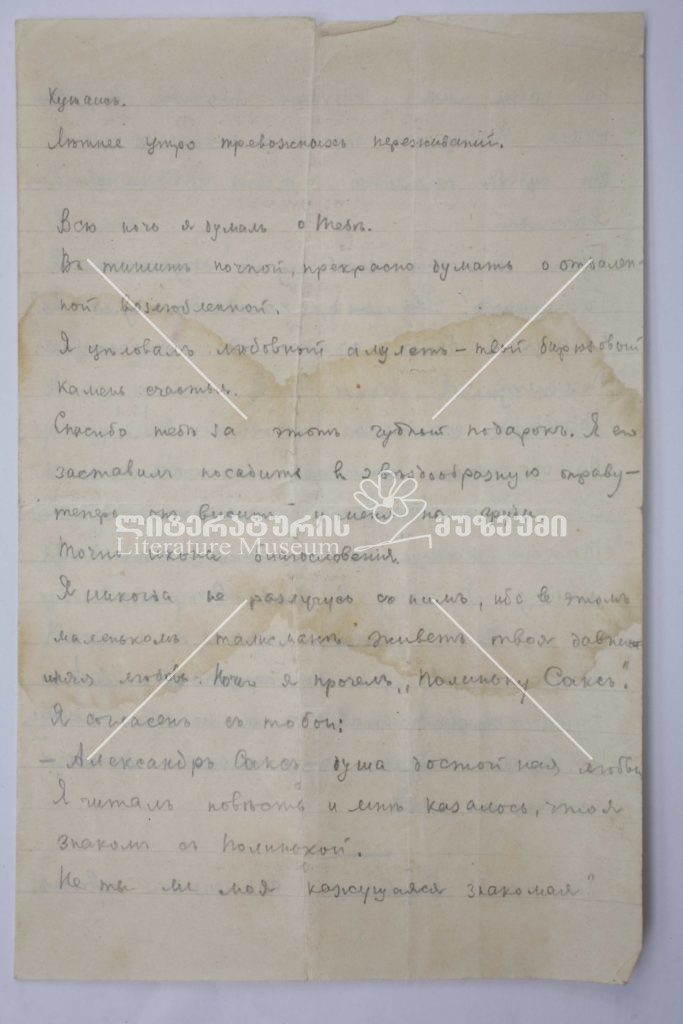 Кутаисъ.
Лѣтнее утро тревожныхъ переживаній.
Всю ночь я думалъ о Тебѣ.
Въ тишинѣ ночной, прекрасно думать о отдален-
ной возлюбленной.
Я цѣловалъ любовный амулетъ – твой бирюзовый
камень счастья.
Спасибо тебѣ за этотъ чудный подарокъ. Я его
заставилъ посадить в звѣздообразную оправу –
теперь онъ виситъ у меня на груди
ლიტერატურის მუზეუმი
Literature Museum
Точно икона благословенія.
Я никогда не разлучусь со нимъ, ибо в этомъ
маленькомъ талисманѣ живетъ твоя давни-
шняя любовь. Ночью я прочелъ „Полиньку Саксъ".
Я согласенъ съ тобой:
– Александръ Саксъ душа достойная любви
Я читалъ повѣсть и мнѣ казалось, что я
знакомъ съ Полинькой.
Не ты ли моя кажущаяся знакомая"